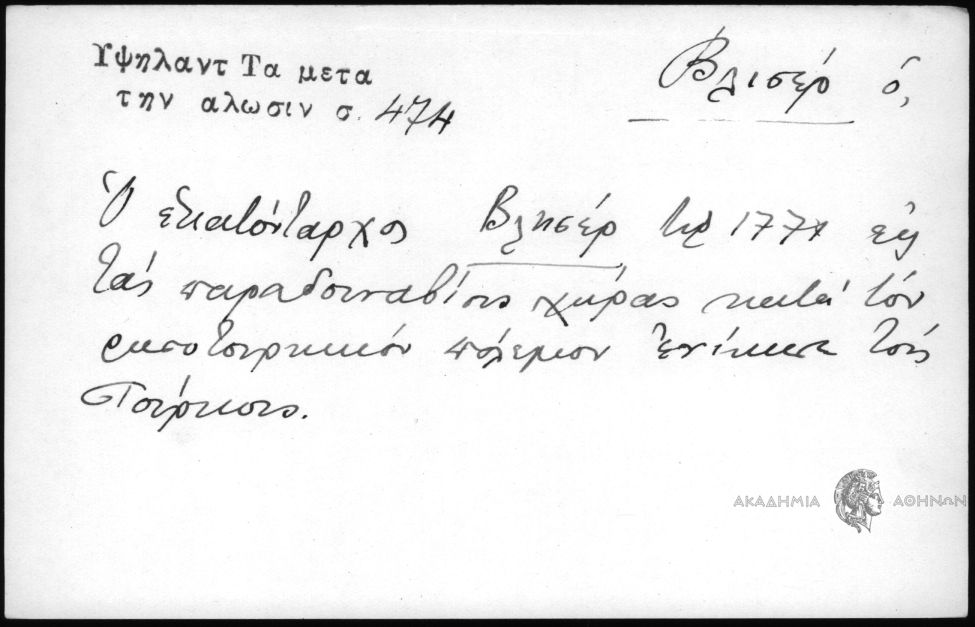 Υψηλαντ Τα μετα
την αλωσιν σ. 474
Βλισέρ ὁ,
Ὁ ἑκατόνταρχος Βλησέρ τῷ 1771 εἰς
τάς παραδουναβίους χώρας κατά τόν
ρωσοτουρκικόν πόλεμον ἐνίκησε τούς
Τούρκους.
ΑΚΑΔΗΜΙΑ ΑΘΗΝΩΝ